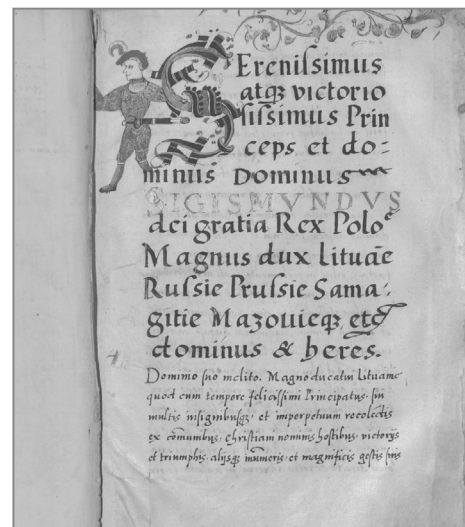 Serenissimus
atqꝫ victorio
sissimus Prin
ceps et do:
minus Dominus
SIGISMVNDVS
dei gratia Rex Polo
Magnus dux Lituãe
Russie Prussie Sama:
gitie Mazouieqꝫ etc
dominus & heres.
Domino suo inclito. Magno ducatui Lituanie
quod cum tempore felicissimi Principatus sui
multis insignibusqꝫ et imperpetuum recolendis
ex cōmunibus christiani nominis hostibus victorijs
et triumphis alijsqꝫ numeris et magnificis gestis suis